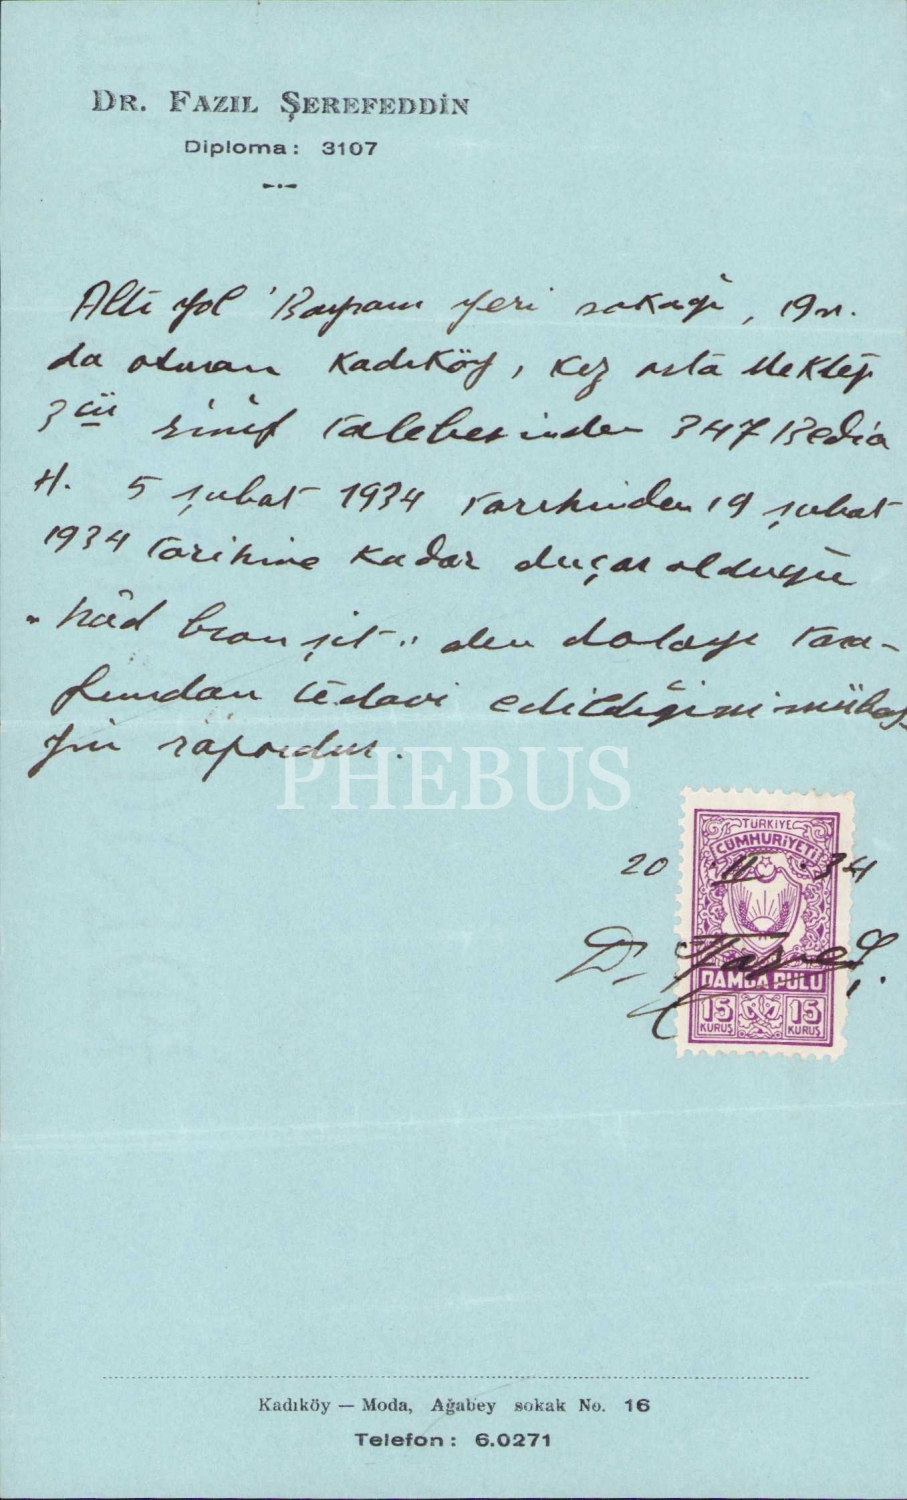 DR. FAZIL ŞEREFEDDİN
Diploma: 3107
Altı yol Bayram yeri sokağı, 19 n.
da oturan Kadıköy, Kız orta Mektep
3 cü sınıf talebesinden 347 Bedia
H. 5 şubat 1934 tarihinden 19 şubat
1934 tarihine kadar duçar olduğu
"hâd bronşit" den dolayı tara-
fımdan tedavi edildiğini mübey-
yin rapordur.
PHEBUS
20 . II . 34
TÜRKİYE
CÜMHURİYETİ
D.
DAMGA PULU
15 KURUŞ 15 KURUŞ
Kadıköy — Moda, Ağabey sokak No. 16
Telefon: 6.0271